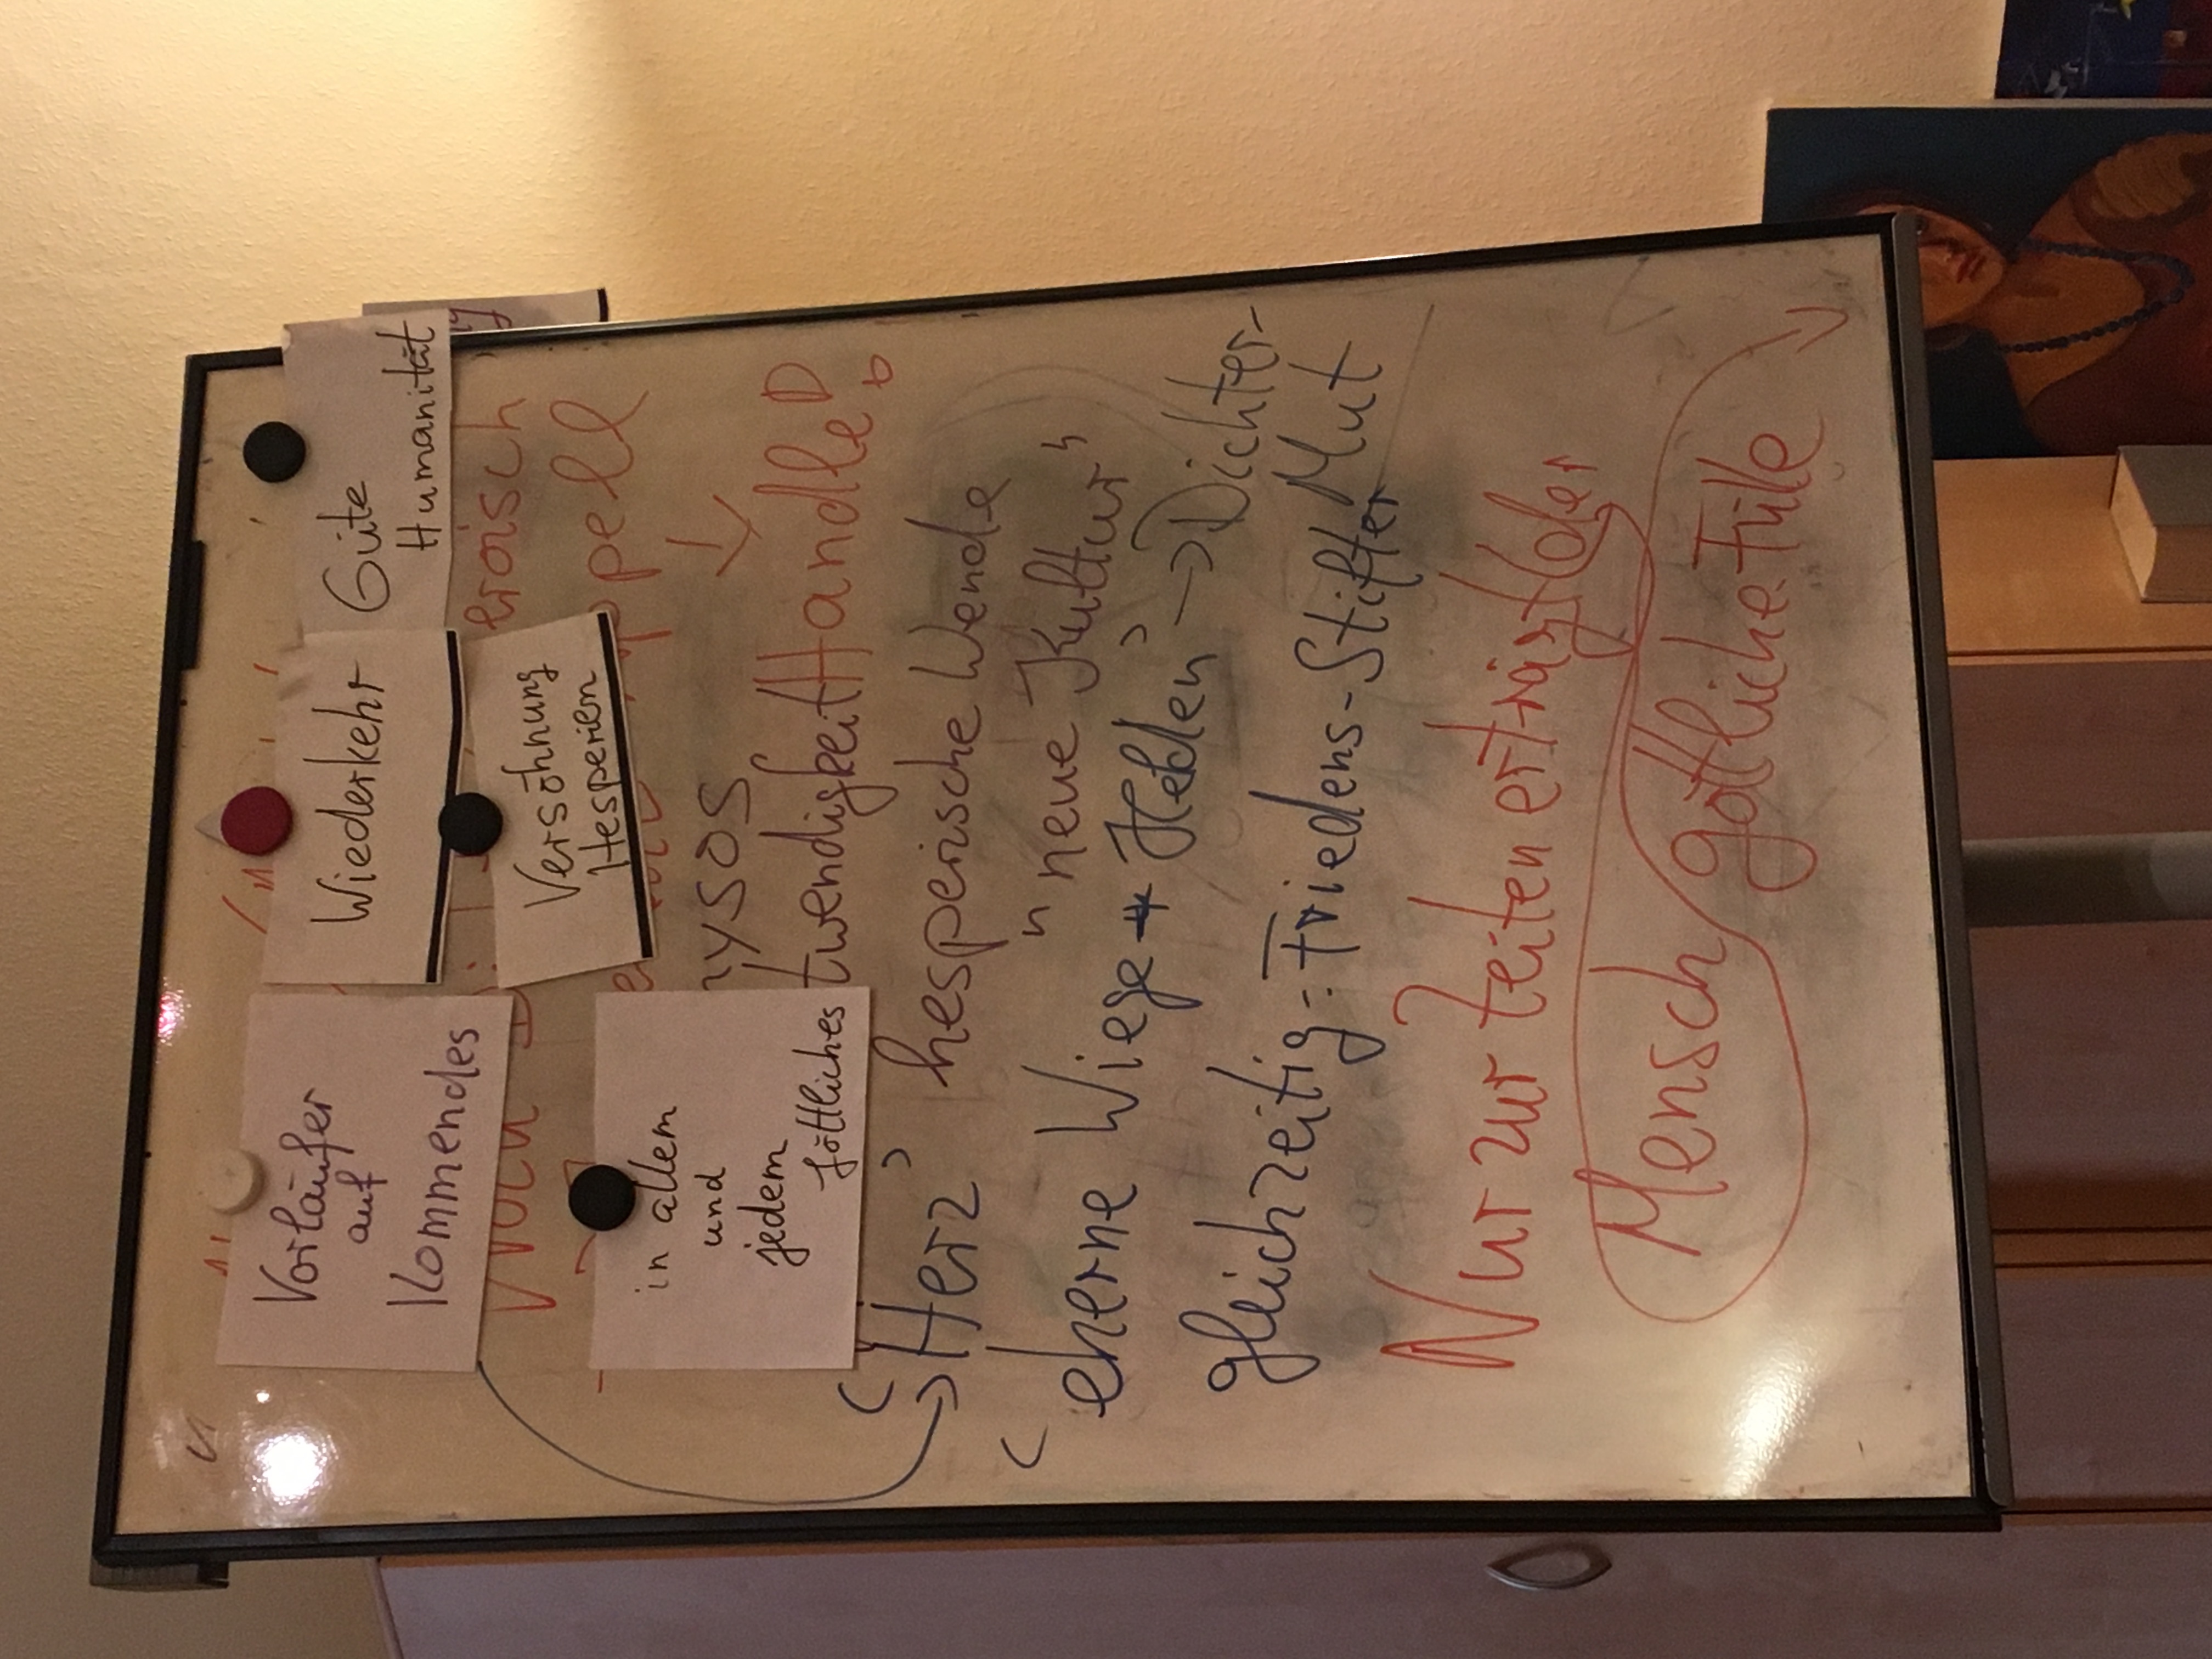 Vorläufer
auf
Kommendes
Wiederkehr
Güte
Humanität
Versöhnung
Hesperien
in allem
und
jedem
göttliches
"Herz"
hesperische Wende
"neue Kultur"
"eherne Wiege + Helden" → Dichter-
Mut
gleichzeitig: Friedens-Stifter
Nur zur Zeiten erträgt der
Mensch göttliche Fülle